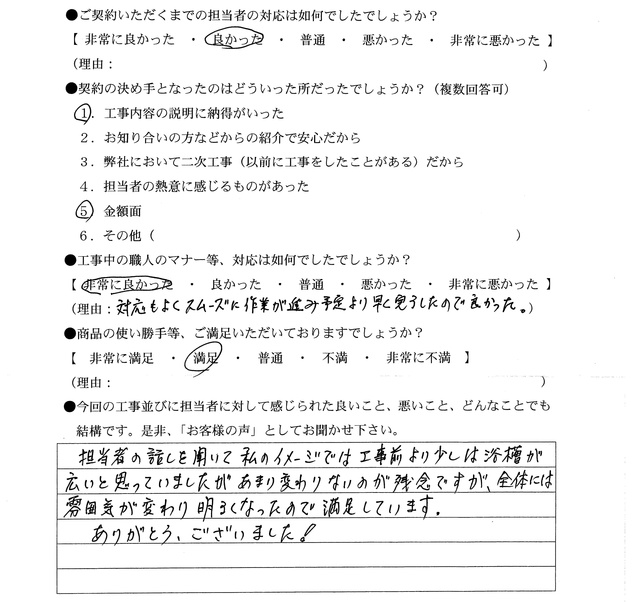 ●ご契約いただくまでの担当者の対応は如何でしたでしょうか？
【 非常に良かった ・ 良かった ・ 普通 ・ 悪かった ・ 非常に悪かった 】
(理由： )
●契約の決め手となったのはどういった所だったでしょうか？（複数回答可）
1．工事内容の説明に納得がいった
2．お知り合いの方などからの紹介で安心だから
3．弊社において二次工事（以前に工事をしたことがある）だから
4．担当者の熱意に感じるものがあった
5 金額面
6．その他（ ）
●工事中の職人のマナー等、対応は如何でしたでしょうか？
【 非常に良かった ・ 良かった ・ 普通 ・ 悪かった ・ 非常に悪かった 】
(理由：対応もよくスムーズに作業が進み予定より早く完了したので良かった。)
●商品の使い勝手等、ご満足いただいておりますでしょうか？
【 非常に満足 ・ 満足 ・ 普通 ・ 不満 ・ 非常に不満 】
(理由： )
●今回の工事並びに担当者に対して感じられた良いこと、悪いこと、どんなことでも
結構です。是非、「お客様の声」としてお聞かせ下さい。
担当者の話しを聞いて私のイメージでは工事前より少しは浴槽が
広いと思っていましたがあまり変わりないのが残念ですが、全体には
雰囲気が変わり明るくなったので満足しています。
ありがとう、ございました！